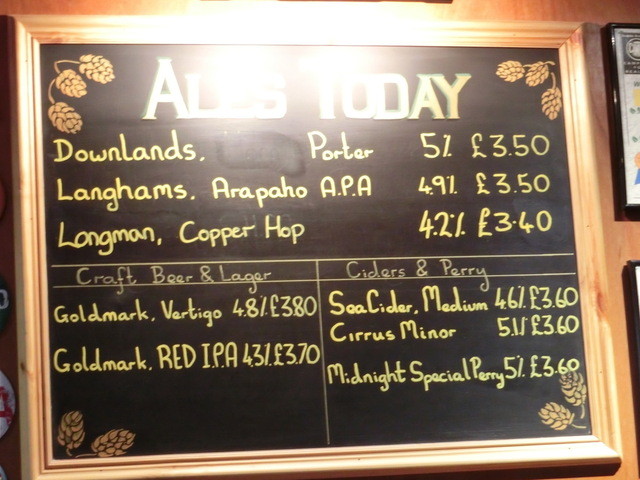 ALES TODAY
Downlands, Porter 5% £3.50
Langhams, Arapaho A.P.A 4.9% £3.50
Longman, Copper Hop 4.2% £3.40
Craft Beer & Lager
Goldmark, Vertigo 4.8% £3.80
Goldmark, RED I.P.A 4.3% £3.70
Ciders & Perry
SeaCider, Medium 4.6% £3.60
Cirrus Minor 5.1% £3.60
Midnight Special Perry 5% £3.60